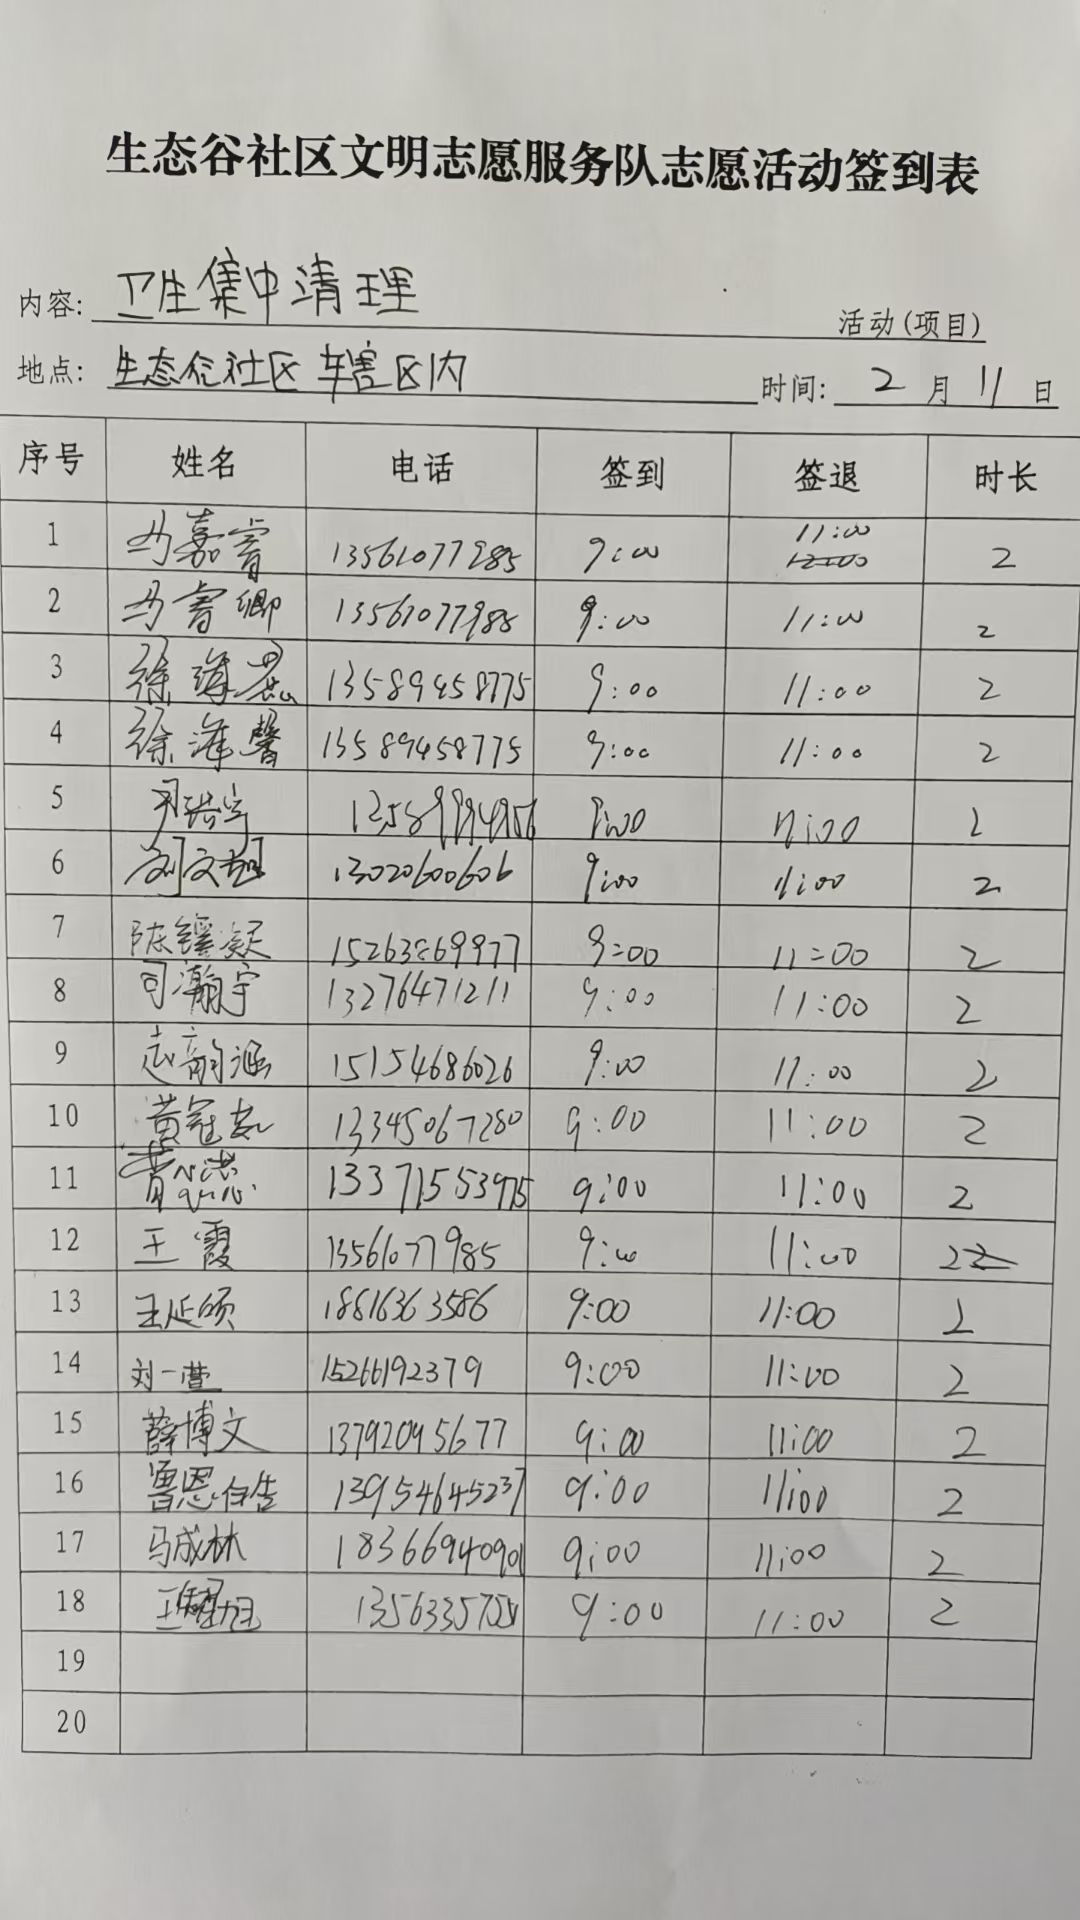 生态谷社区文明志愿服务队志愿活动签到表
内容: 卫生集中清理 活动(项目)
地点: 生态谷社区辖区内 时间: 2月11日
序号 姓名 电话 签到 签退 时长
1 马嘉睿 13561077985 9:00 11:00 2
2 马睿卿 13561077988 9:00 11:00 2
3 徐海 13589458775 9:00 11:00 2
4 徐海馨 13589458775 9:00 11:00 2
5 11:00 2
6 刘文 13020600606 9:00 11:00 2
7 陈 15263869977 9:00 11:00 2
8 司瀚宇 13276471211 9:00 11:00 2
9 韵涵 15154686026 9:00 11:00 2
10 黄冠 13345067280 9:00 11:00 2
11 13371553975 9:00 11:00 2
12 王霞 13561077985 9:00 11:00 2
13 王延硕 18816363586 9:00 11:00 2
14 刘一萱 15266192379 9:00 11:00 2
15 薛博文 13792095677 9:00 11:00 2
16 鲁恩 13954645237 9:00 11:00 2
17 马成林 18366940901 9:00 11:00 2
18 王 9:00 11:00 2
19
20